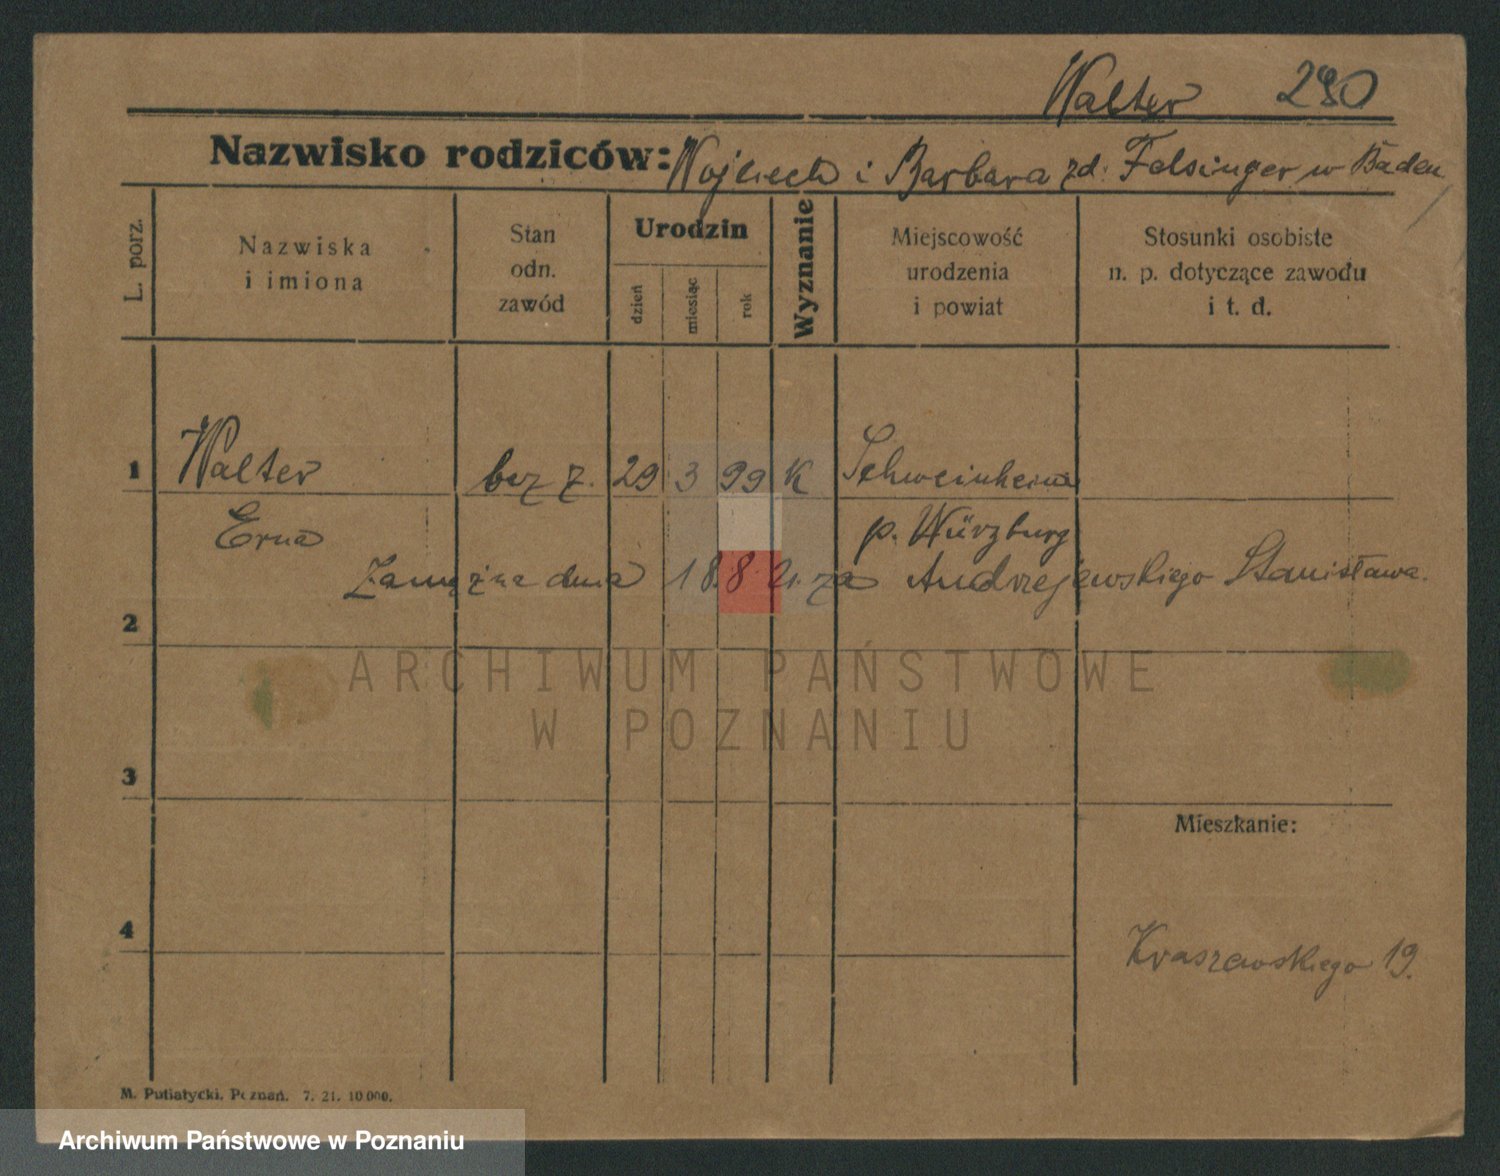 Walter 290
Nazwisko rodziców: Wojciech i Barbara zd. Felsinger w Baden
L. porz.
Nazwiska
i imiona
Stan
odn.
zawód
Urodzin
dzień
miesiąc
rok
Wyznanie
Miejscowość
urodzenia
i powiat
Stosunki osobiste
n. p. dotyczące zawodu
i t. d.
1 Walter bez z. 29 3 99 K Schweinheim
Erna p. Würzburg
Zamężna dnia 18.8 21. za Andrzejewskiego Stanisława.
2
ARCHIWUM PAŃSTWOWE
W POZNANIU
3
Mieszkanie:
4
Kraszewskiego 19.
M. Putiatycki, Poznań. 7. 21. 10 000.
Archiwum Państwowe w Poznaniu